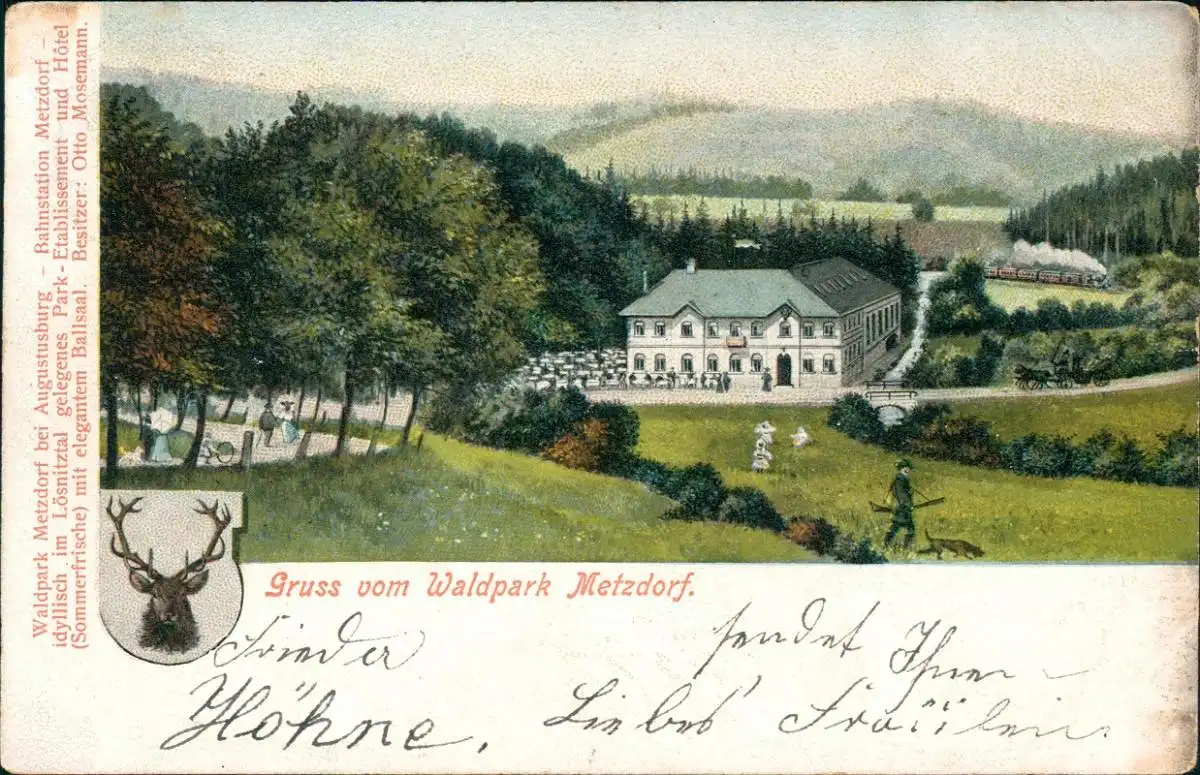 Waldpark Metzdorf bei Augustusburg – Bahnstation Metzdorf –
idyllisch im Lösnitztal gelegenes Park-Etablissement und Hôtel
(Sommerfrische) mit elegantem Ballsaal. Besitzer: Otto Mosemann.
Gruss vom Waldpark Metzdorf.
Frieder
Höhne.
sendet Ihnen
Liebes Fräulein.